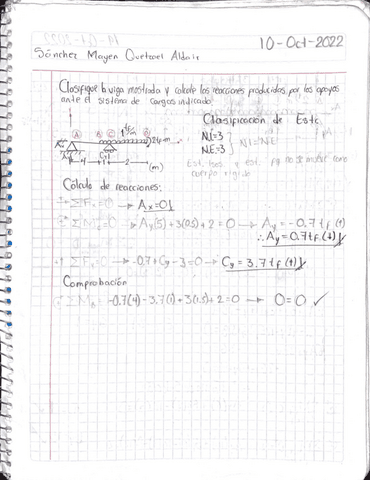 10-Oct-2022
Sánchez Mayen Quetzael Aldair
Clasifique la viga mostrada y calcule las reacciones producidas por los apoyos
ante el sistema de cargas indicado.
Clasificación de Est.
A B C D
NI=3
NE=3
NI=NE
(m)
Cálculo de reacciones:
ΣFx=0 → Ax=0
ΣMc=0 → Ay(5)+3(0.5)+2=0 → Ay=-0.7tf(↑)
∴ Ay=0.7tf(↓)
ΣFy=0 → -0.7+Cy-3=0 → Cy=3.7tf(↑)
Comprobación
ΣMB=-0.7(4)-3.7(1)+3(1.5)+2=0 → 0=0 ✓